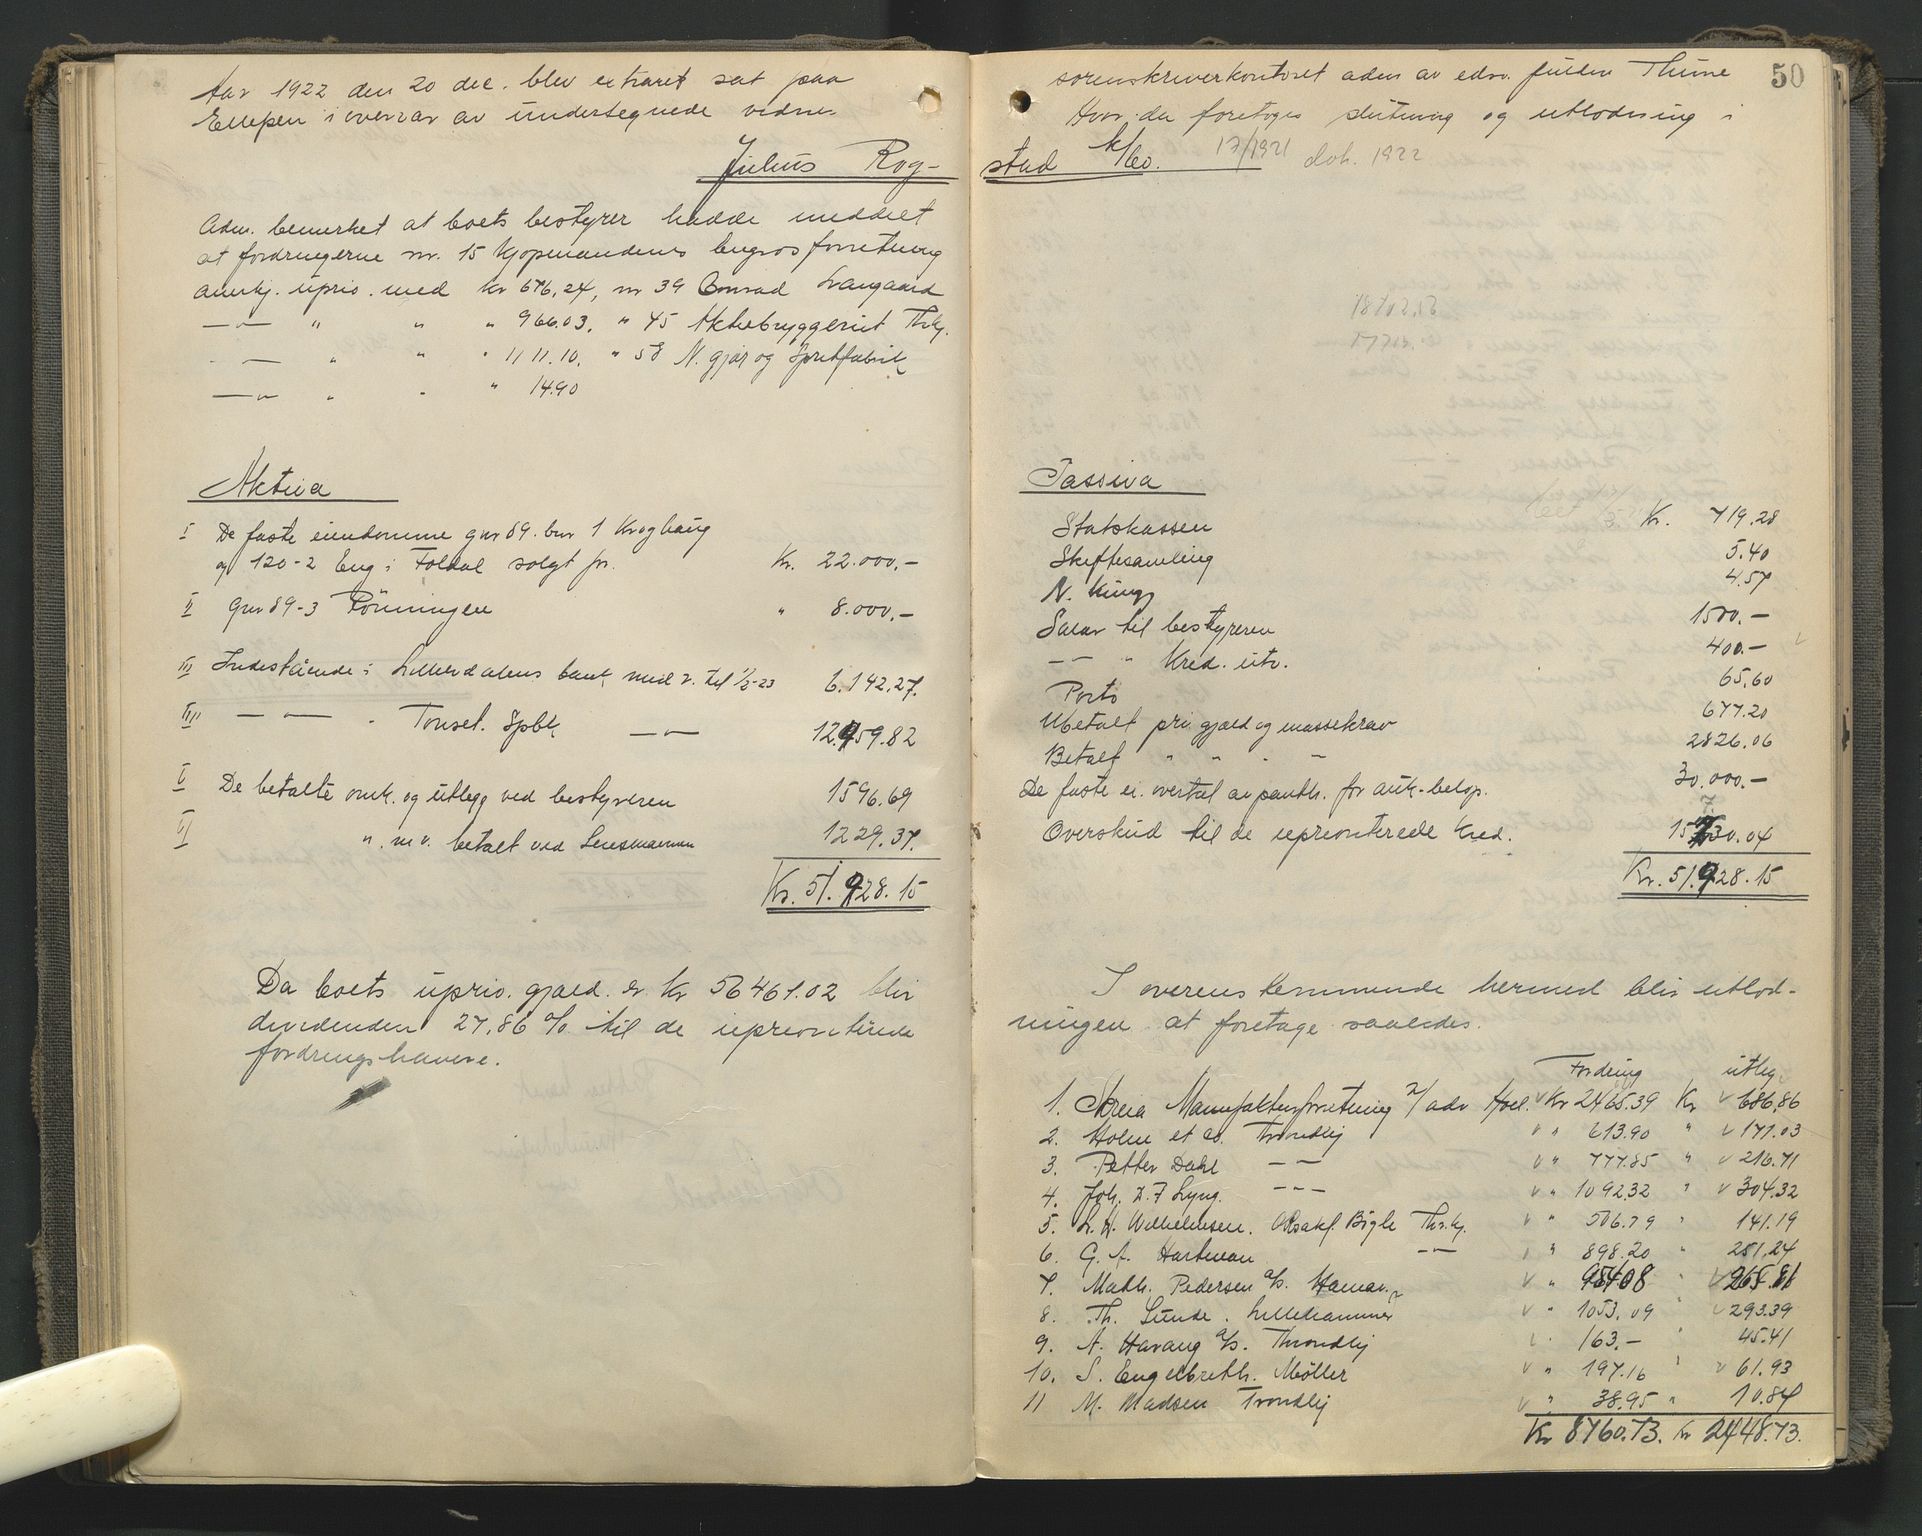 Aar 1922 den 20 dec. blev extraret sat paa
Ellepen i overvar av undertegnede vidne.
Julius Rog-
Adm. bemerket at boets bestyrer hadde meddelt
at fordringerne nr. 15 Kjøpmandenes Engrosforretning
anerkj. uprio. med kr 676,24, nr 39 Conrad Langaard
— „ — „ „ „ 966.03. „ 45 Aktiebryggeriet Thrhj.
— „ — „ „ „ 1111.10. „ 58 N. gjær og Spritfabrik
— „ — „ „ „ 14.90
Aktiva
I De faste eiendomme gnr 89. bnr 1 Kroghaug
og 120-2 Eng i Foldal solgt for. Kr. 22.000,-
II gnr 89-3 Rönningen „ 8.000,-
III Indestående i Lillerdalens bank med r. til 1/2-23 6.142,27.
IIII — „ — Tonset. Spbk — „ — 12.959.82
V De betalte omk. og utlegg ved bestyreren 1596.69
VI „ m v. betalt ved Lensmannen 1229.37.
Kr. 51.928.15
Da boets uprio. gjæld. er kr 56461.02 blir
dividenden 27,86 % til de uprioriterte
fordringshavere.
50
sorenskriverkontoret aden av edsv. fuldm Thune
Hvor da foretoges slutning og utlodning i
stad k/bo. 17/1921 dok. 1922
18702,56
Passiva
Statskassen Kr. 719.28
Skiftesamling 5.40
N. Kung 4.57
Salær til bestyreren 1500.-
— „ — „ Kred. utv. 400.-
Porto 65,60
Ubetalt pri. gjæld og massekrav 677.20
Betalt „ „ „ „ 2826.06
De faste ei. overtat av panth. for auk-beløp. 30.000.-
Overskud til de uprioriterede Kred. 15730.04
Kr. 51.928.15
I overensstemmende hermed blir utlod-
ningen at foretage saaledes.
Fordring utlegg
1. Skreia Manufakturforretning v/adv Hoel. Kr 2465.39 Kr 686,86
2. Holm et co. Trondhj „ 613.90 „ 171.03
3. Petter Dahl — „ — „ 777.85 „ 216.71
4. Joh. L. F Lyng. — „ — „ 1092.32 „ 304,32
5. L. H. Wilhelmsen. O.R.sakf. Bögle Thrhj. „ 506.79 „ 141.19
6. G. A. Hartman — „ — „ 898.20 „ 251,24
7. Math. Pedersen a/s. Hamar. „ 954.08 „ 265.81
8. Th. Lunde. Lillehammer „ 1053.09 „ 293.39
9. A. Havang a/s. Throndhj „ 163.- „ 45.41
10. S. Engelbreth. Møller „ 197.16 „ 61.93
11 M. Madsen Trondhj „ 38.95 „ 10.84
Kr 8760.73. Kr 2448.73.